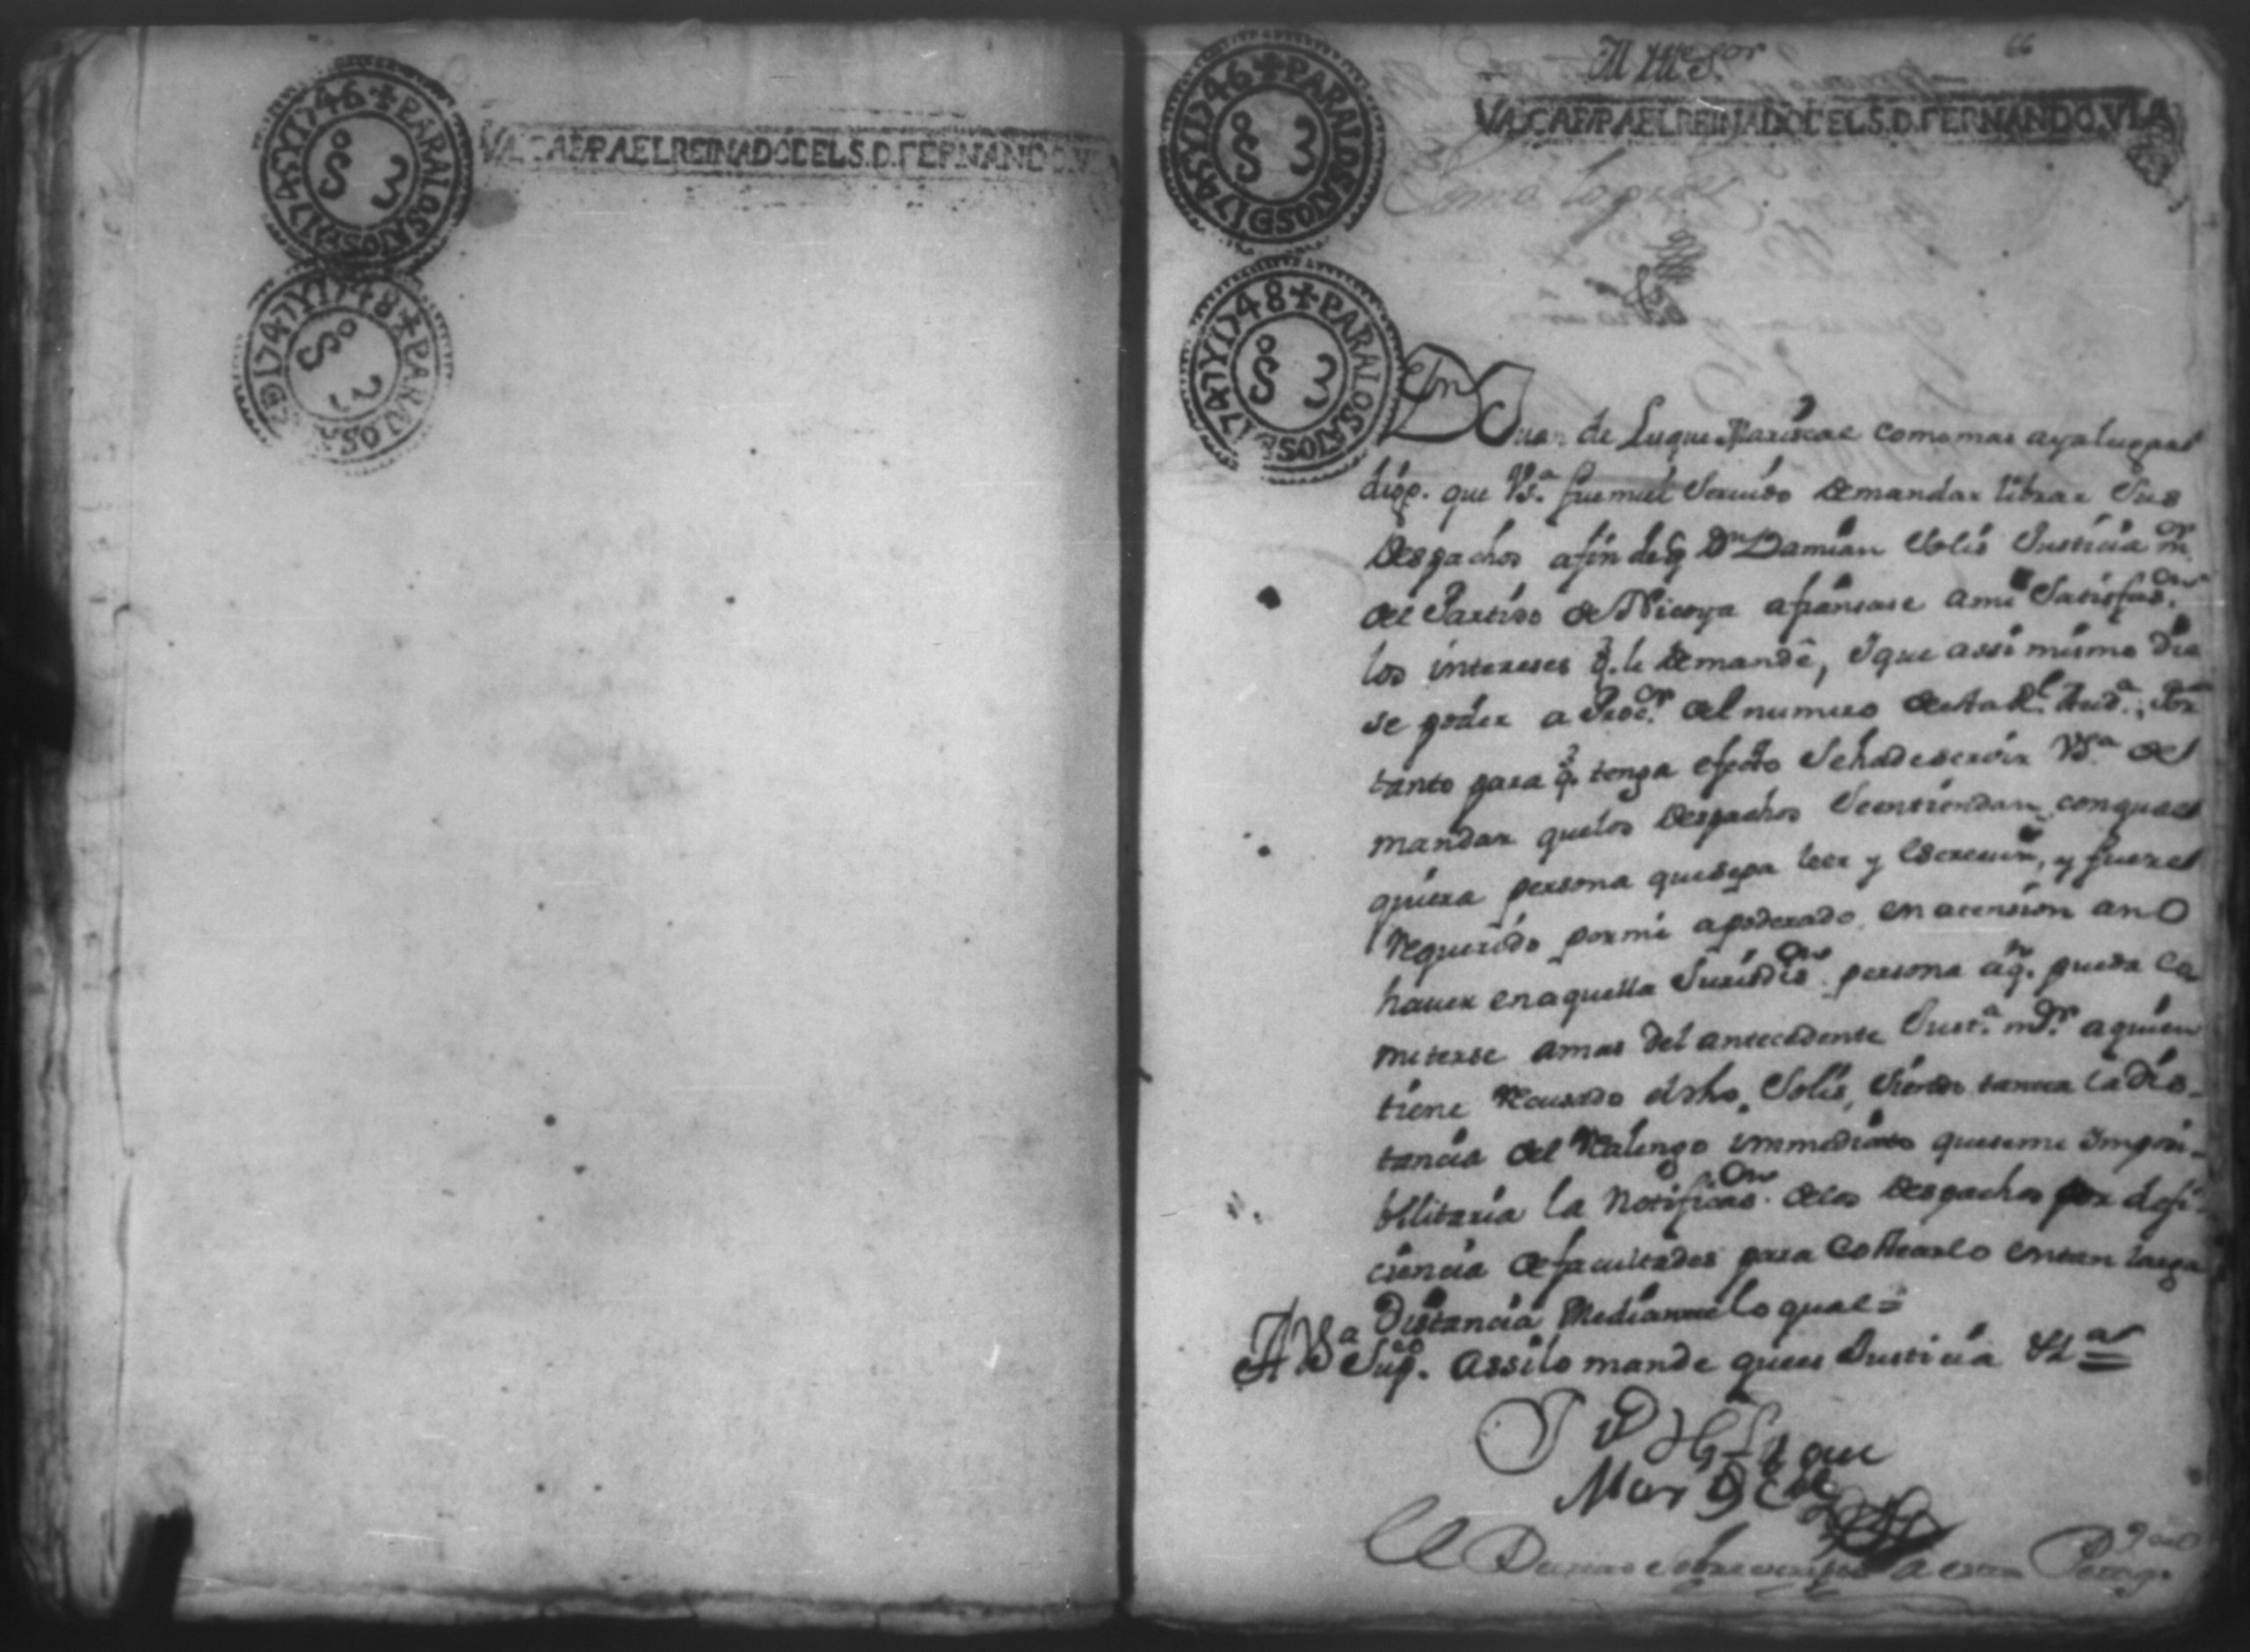 1745 Y 1746 + PARA LOS AÑOS DE
So 3
VALGA PA EL REINADO DEL S. D. FERNANDO. VI
1747 Y 1748 + PARA LOS AÑOS DE
So 3
M Yllе Sor
66
1745 Y 1746 + PARA LOS AÑOS DE
So 3
VALGA PA EL REINADO DEL S. D. FERNANDO. VI
Como lo pide
1747 Y 1748 + PARA LOS AÑOS DE
So 3
Dn Juan de Luque Mariscal como mas aya lugar
digo. que VSa. fue mui Servido de mandar librar Sus
Despachos a fin de q Dn Damian Solis Justicia mor
del Partido de Nicoya afiansase a mi Satisfason.
los intereses q. le demandê, y que assi mismo die
se poder a Procor. del numero de esta Rl. Auda. Por
tanto para q. tenga efecto Se ha de servir VSa. de
mandar que los Despachos Se entiendan con qual
quiera persona que sepa leer y escrevir, y fuere
Requerido por mi apoderado en atension a no
haver en aquella Jurisdison. persona â q. pueda co
meterse a mas del antecedente Justa. mor. a quien
tiene Recusado el dho Solis, Siendo tanta la dis-
tancia del Realengo immediato que se me Imposi-
bilitaria la Notificason. de los Despachos por defi-
ciencia de facultades para Costearlo en tan larga
Distancia Mediante lo qual =
A VSa Supco. assi lo mande que es Justicia Va =
Luque
Mariscal